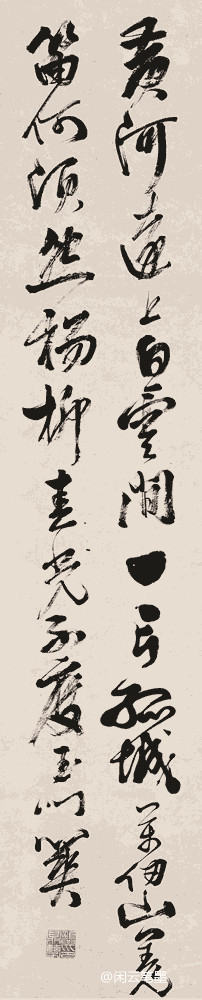 黄河遠上白雲間一片孤城萬仞山羌
笛何須怨楊柳春光不度玉門關
@闲云笔墨